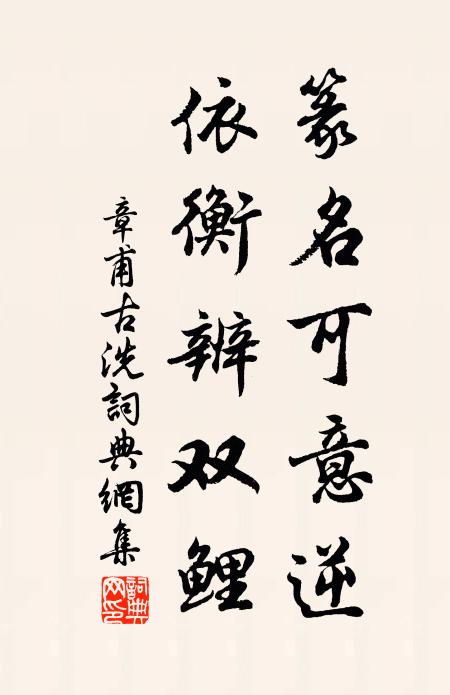 篆名可意逆
依衡辨双鲤
章甫古洗詞典網集
詞典網印